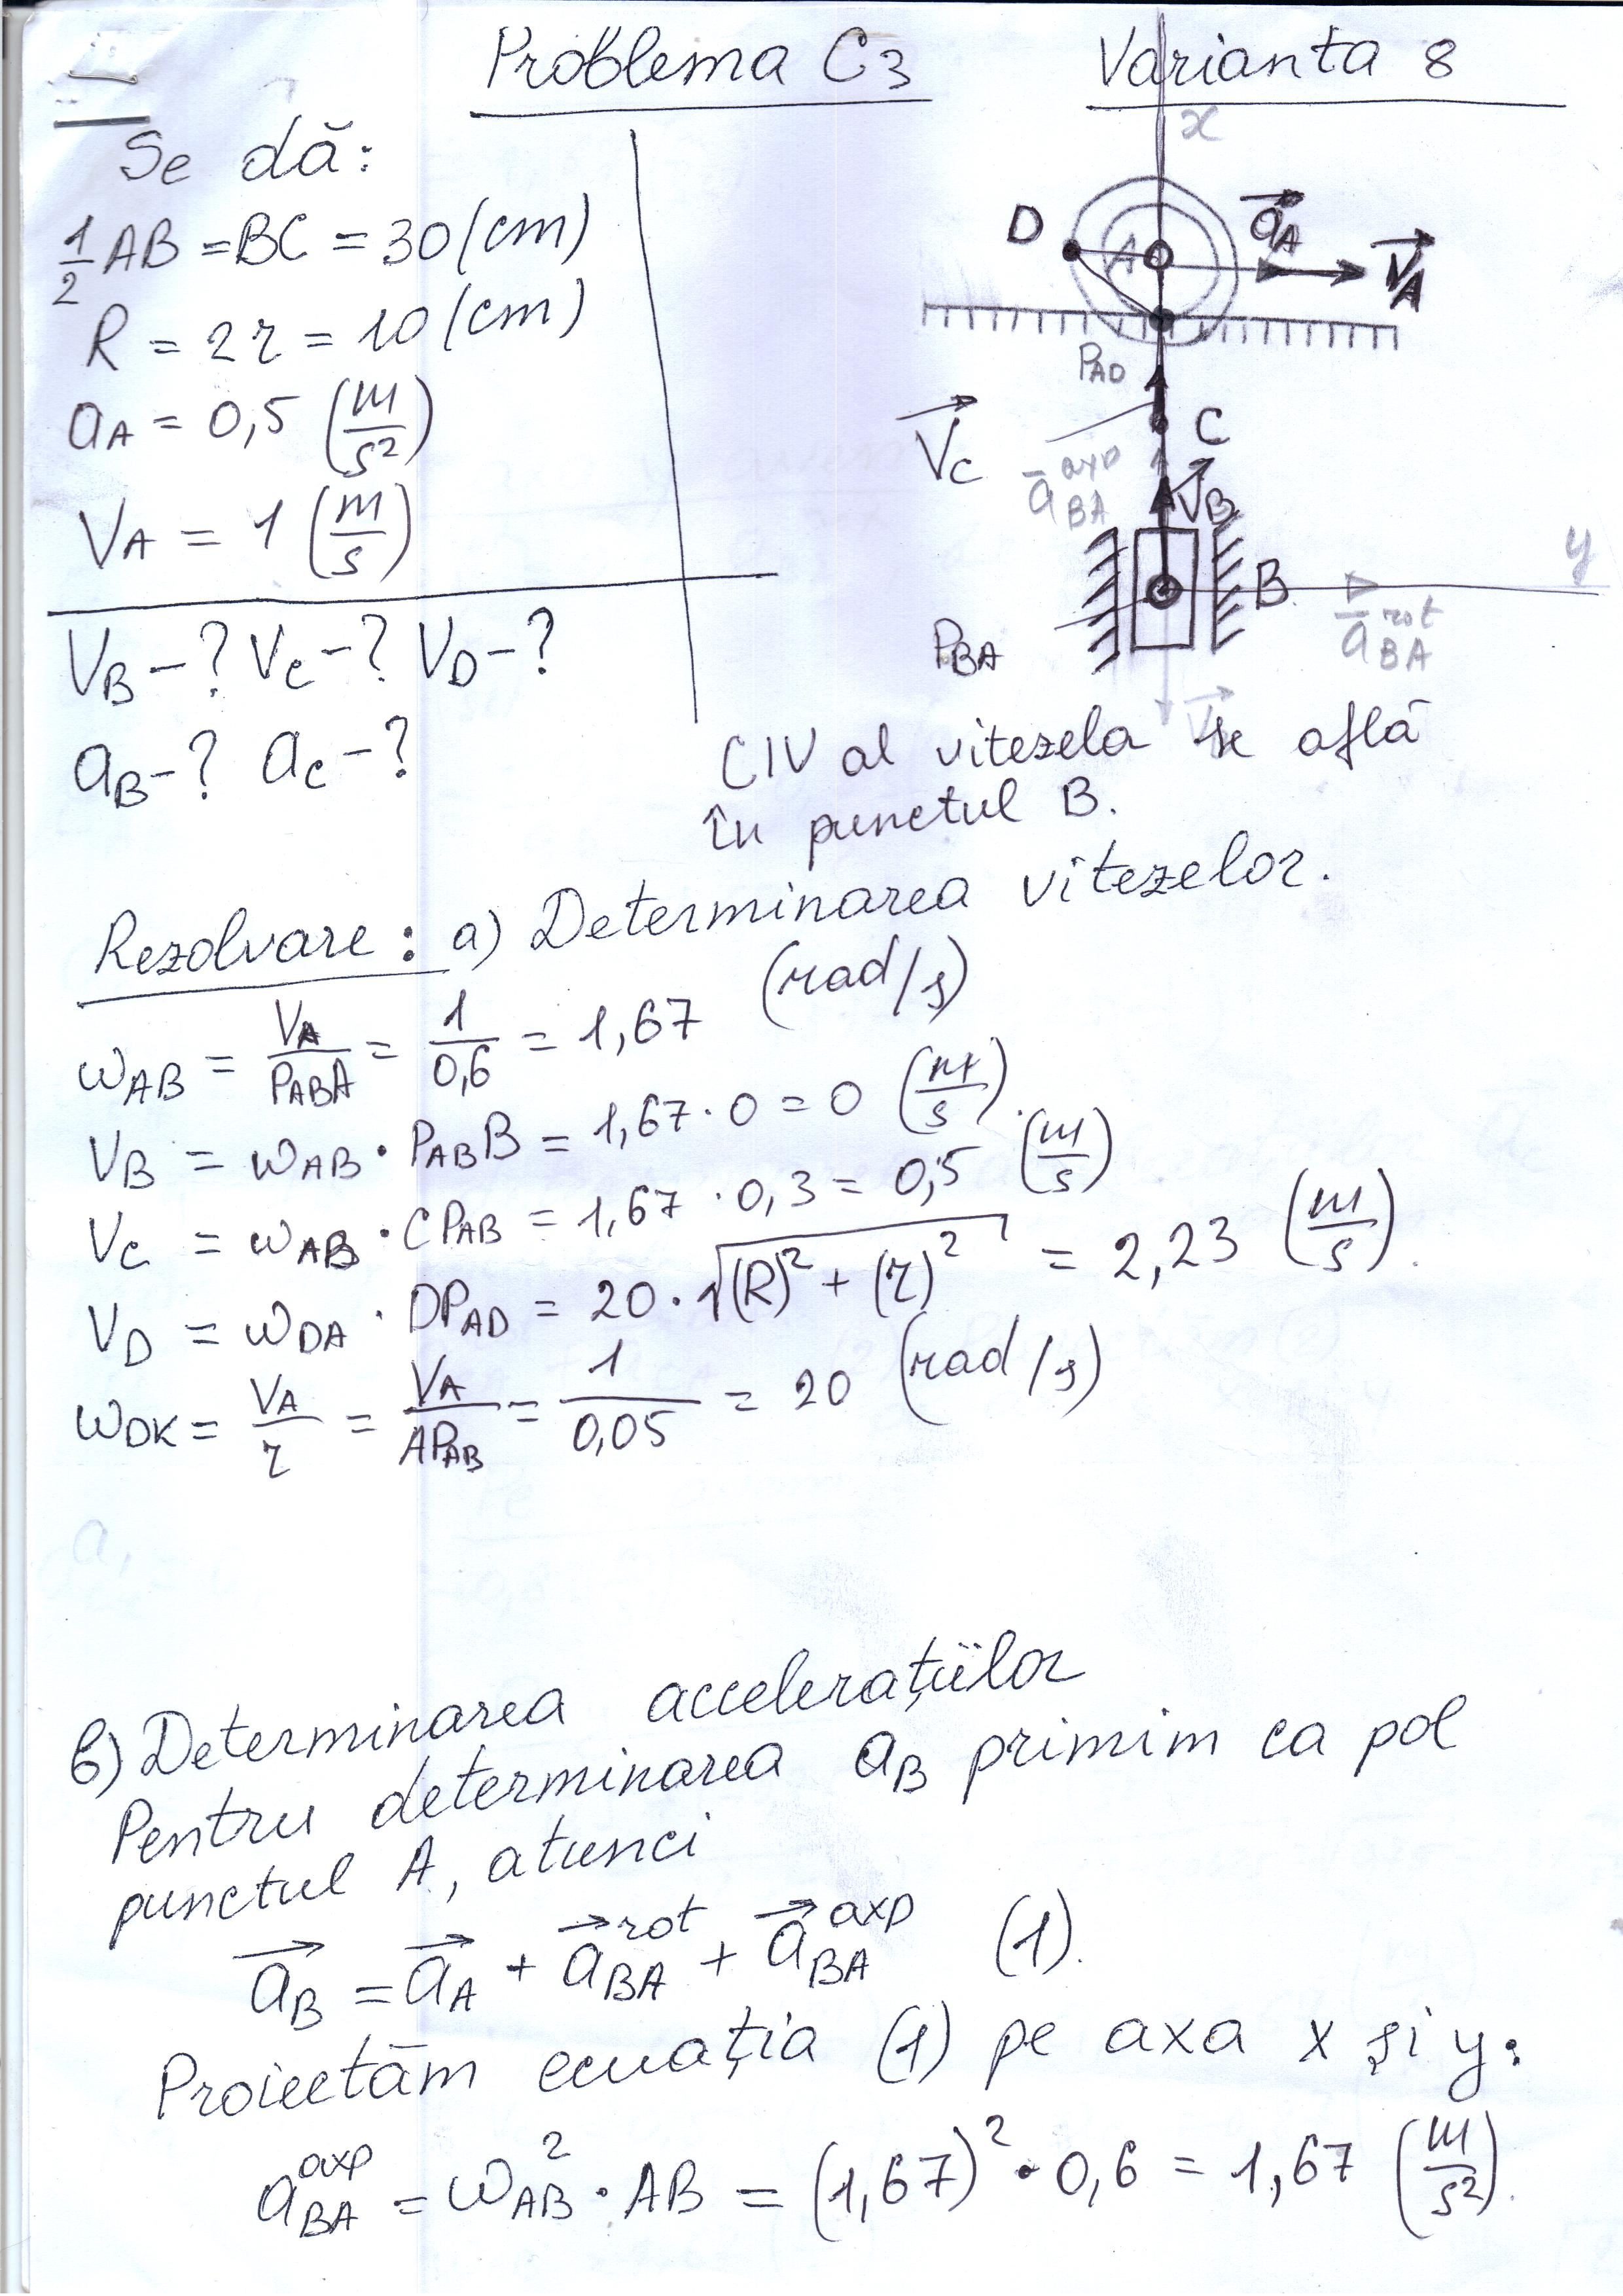 Problema C3 Varianta 8
Se dă:
1/2 AB = BC = 30 (cm)
R = 2r = 10 (cm)
aA = 0,5 (m/s²)
VA = 1 (m/s)
VB - ? VC - ? VD - ?
aB - ? aC - ?
x
D
A
aA
VA
PAD
VC
C
aBA axp
VB
y
B
PBA
aBA rot
CIV al vitezela se află
în punctul B.
Rezolvare: a) Determinarea vitezelor.
ωAB = VA/PABA = 1/0,6 = 1,67 (rad/s)
VB = ωAB · PABB = 1,67 · 0 = 0 (m/s).
VC = ωAB · CPAB = 1,67 · 0,3 = 0,5 (m/s)
VD = ωDA · DPAD = 20 · √((R)² + (r)²) = 2,23 (m/s).
ωDK = VA/r = VA/APAB = 1/0,05 = 20 (rad/s)
b) Determinarea accelerațiilor
Pentru determinarea aB primim ca pol
punctul A, atunci
aB = aA + aBA rot + aBA axp (1).
Proiectăm ecuația (1) pe axa x și y:
aBA axp = ωAB² · AB = (1,67)² · 0,6 = 1,67 (m/s²).